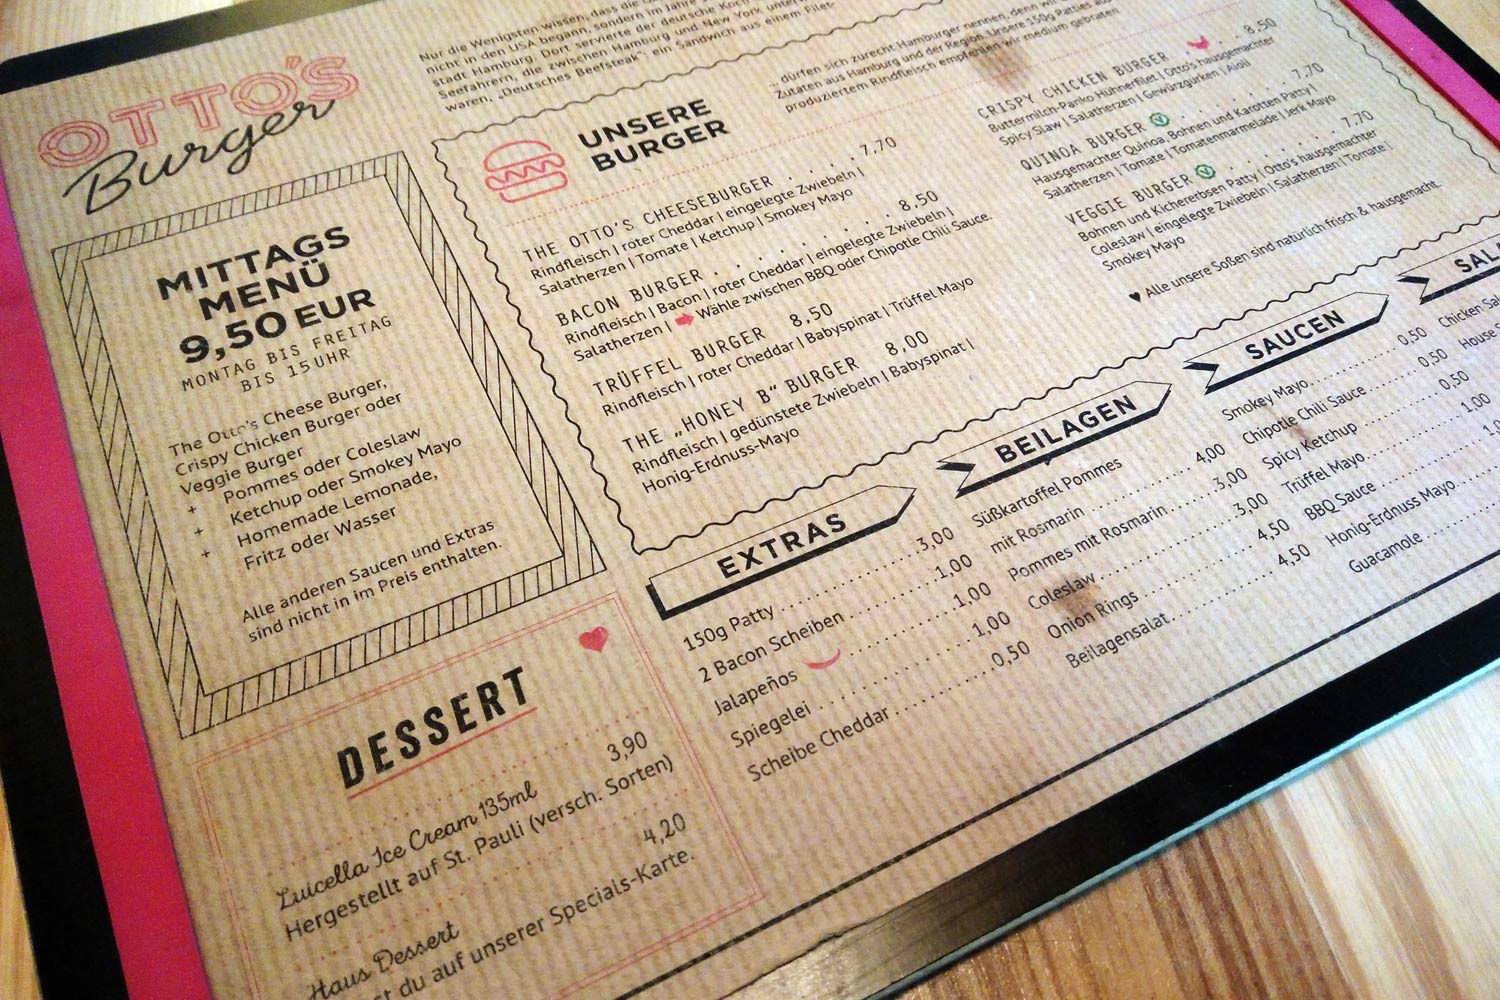 OTTO'S
Burger
Nur die Wenigsten wissen, dass die
nicht in den USA begann, sondern im Jahre
Stadt Hamburg. Dort servierte der deutsche Koch
Seefahrern, die zwischen Hamburg und New York
waren, „Deutsches Beefsteak“: ein Sandwich aus einem Filet
MITTAGS
MENÜ
9,50 EUR
MONTAG BIS FREITAG
BIS 15 UHR
The Otto's Cheese Burger,
Crispy Chicken Burger oder
Veggie Burger
+ Pommes oder Coleslaw
+ Ketchup oder Smokey Mayo
+ Homemade Lemonade,
Fritz oder Wasser
Alle anderen Saucen und Extras
sind nicht in im Preis enthalten.
DESSERT
Luicella Ice Cream 135ml 3,90
Hergestellt auf St. Pauli (versch. Sorten)
Haus Dessert 4,20
du auf unserer Specials-Karte.
UNSERE
BURGER
dürfen sich zurecht Hamburger nennen, denn wir
Zutaten aus Hamburg und der Region. Unsere 150g Patties aus
produziertem Rindfleisch empfehlen wir medium gebraten
THE OTTO'S CHEESEBURGER . . . . 7,70
Rindfleisch | roter Cheddar | eingelegte Zwiebeln |
Salatherzen | Tomate | Ketchup | Smokey Mayo
BACON BURGER . . . . . . . . 8,50
Rindfleisch | Bacon | roter Cheddar | eingelegte Zwiebeln |
Salatherzen | Wähle zwischen BBQ oder Chipotle Chili Sauce.
TRÜFFEL BURGER 8,50
Rindfleisch | roter Cheddar | Babyspinat | Trüffel Mayo
THE „HONEY B“ BURGER 8,00
Rindfleisch | gedünstete Zwiebeln | Babyspinat |
Honig-Erdnuss-Mayo
CRISPY CHICKEN BURGER . . 8,50
Buttermilch-Panko Hühnerfilet | Otto's hausgemachter
Spicy Slaw | Salatherzen | Gewürzgurken | Aioli
QUINOA BURGER V . . . . . . 7,70
Hausgemachter Quinoa, Bohnen und Karotten Patty |
Salatherzen | Tomate | Tomatenmarmelade | Jerk Mayo
VEGGIE BURGER V . . . . . . 7,70
Bohnen und Kichererbsen Patty | Otto's hausgemachter
Coleslaw | eingelegte Zwiebeln | Salatherzen | Tomate |
Smokey Mayo
♥ Alle unsere Soßen sind natürlich frisch & hausgemacht.
EXTRAS
150g Patty 3,00
2 Bacon Scheiben 1,00
Jalapeños 1,00
Spiegelei 1,00
Scheibe Cheddar 0,50
BEILAGEN
Süßkartoffel Pommes
mit Rosmarin 4,00
Pommes mit Rosmarin 3,00
Coleslaw 3,00
Onion Rings 4,50
Beilagensalat 4,50
SAUCEN
Smokey Mayo 0,50
Chipotle Chili Sauce 0,50
Spicy Ketchup 0,50
Trüffel Mayo 1,00
BBQ Sauce
Honig-Erdnuss Mayo
Guacamole
Chicken
House